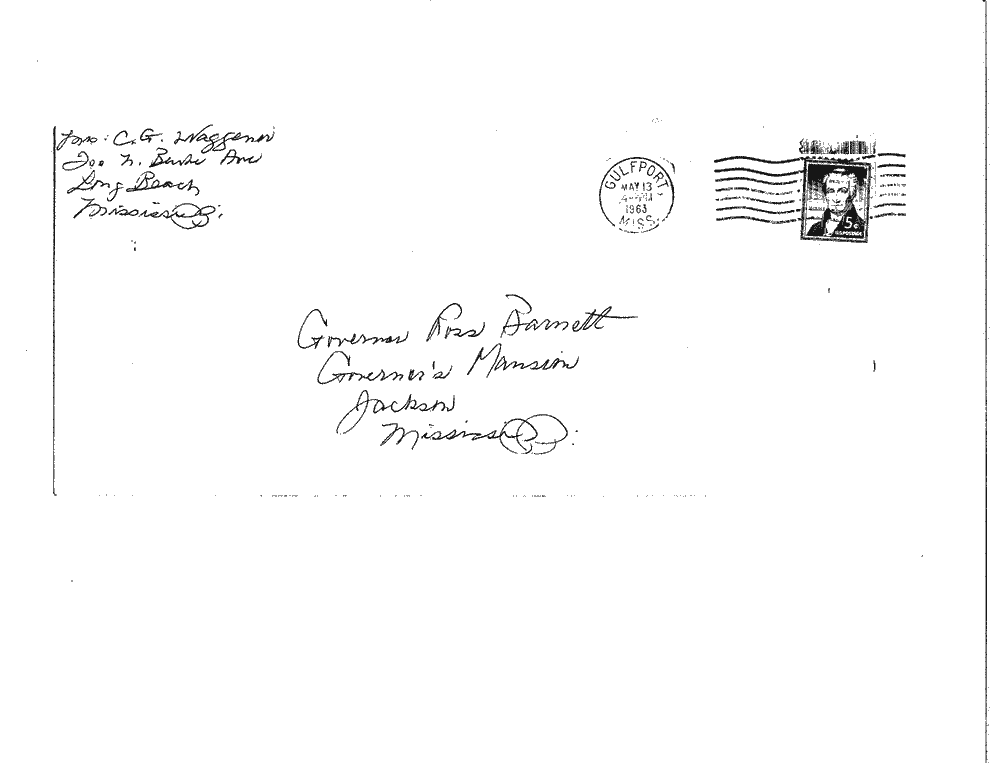 Mrs. C. G. Waggener
200 N. Ave
Long Beach
Mississippi
GULFPORT,
MAY 13
PM
1963
MISS.
5¢
U.S. POSTAGE
Governor Ross Barnett
Governor's Mansion
Jackson
Mississippi